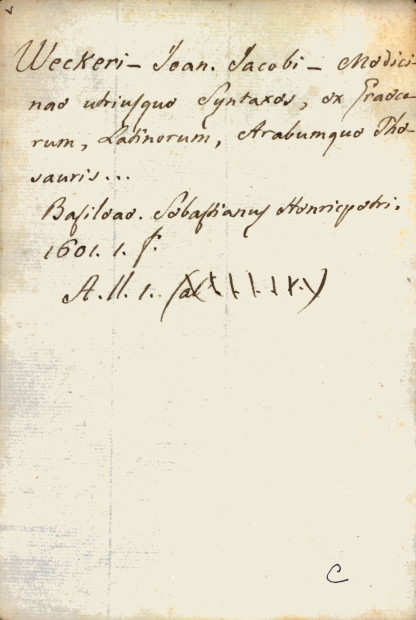 Weckeri – Ioan. Jacobi – Medici-
nae utriusque Syntaxes, ex Graeco-
rum, Latinorum, Arabumque The-
sauris...
Basileae. Sebastianus Henricpetri.
1601. 1. f.
A. II. 1.
C